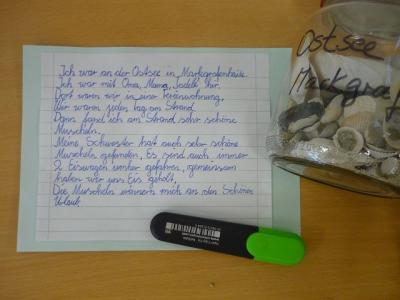 Ich war an der Ostsee in Markgrafenheide.
Ich war mit Oma, Mama, hier.
Dort waren wir in einer Ferienwohnung,
Wir waren jeden tag am Strand.
Dann fand ich am Strand sehr schöne
Muscheln.
Meine Schwester hat auch sehr schöne
Muscheln gefunden, Es sind auch immer
2 Eiswagen umher gefahren, gemeinsam
haben wir uns Eis geholt,
Die Muscheln erinnern mich an den Schönen
Urlaub
Ostsee
Markgraf